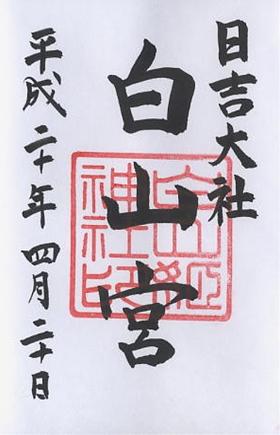 日吉大社
白山宮
白山姫
神社印
平成二十年四月二十日